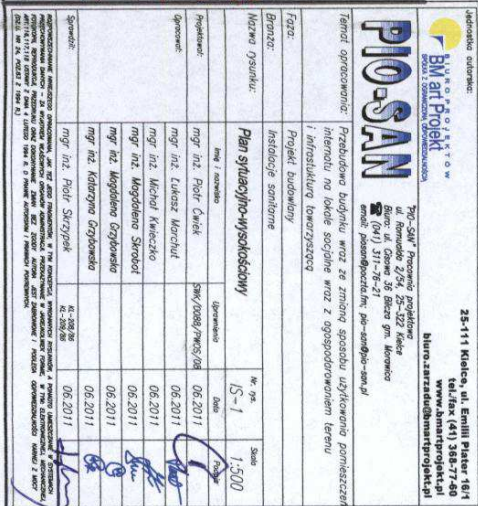 Jednostka autorska:
BIURO PROJEKTÓW
BM art Projekt
SPÓŁKA Z OGRANICZONĄ ODPOWIEDZIALNOŚCIĄ
25-111 Kielce, ul. Emilii Plater 16/1
tel./fax (41) 368-77-60
www.bmartprojekt.pl
biuro.zarzadu@bmartprojekt.pl
PIO-SAN
"PIO-SAN" Pracownia projektowa
ul. Romualda 2/54, 25-322 Kielce
Biuro: ul. Ciasna 36 Bilcza gm. Morawica
☎ (041) 311-76-21
email: piosan@poczta.fm; pio-san@pio-san.pl
Temat opracowania: Przebudowa budynku wraz ze zmianą sposobu użytkowania pomieszczeń
internatu na lokale socjalne wraz z zagospodarowaniem terenu
i infrastukturą towarzyszącą
Faza: Projekt budowlany
Branża: Instalacje sanitarne
Nazwa rysunku: Plan sytuacyjno-wysokościowy Nr. rys. IS-1 Skala 1:500
Imię i nazwisko Uprawnienia Data Podpis
Projektował: mgr inż. Piotr Ćwiek SWK/0088/PWOS/08 06.2011
Opracował: mgr inż. Łukasz Marchut 06.2011
mgr inż. Michał Kwieczko 06.2011
mgr inż. Magdalena Skrobot 06.2011
mgr inż. Magdalena Grzybowska 06.2011
mgr inż. Katarzyna Grzybowska 06.2011
Sprawdził: mgr inż. Piotr Skrzypek KL-208/86 06.2011
KL-209/86